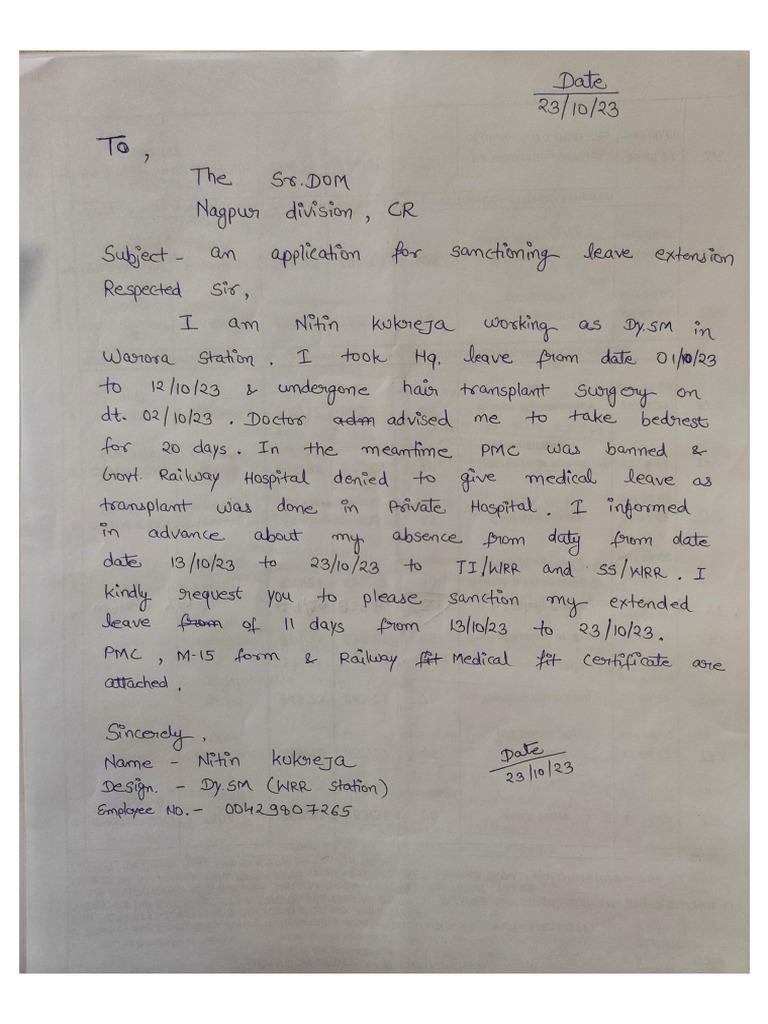 Date
23/10/23
To,
The Sr.DOM
Nagpur division, CR
Subject - an application for sanctioning leave extension
Respected Sir,
I am Nitin Kukreja working as Dy.SM in
Warora Station. I took Hq. leave from date 01/10/23
to 12/10/23 & undergone hair transplant surgery on
dt. 02/10/23. Doctor adm advised me to take bedrest
for 20 days. In the meantime PMC was banned &
Govt. Railway Hospital denied to give medical leave as
transplant was done in Private Hospital. I informed
in advance about my absence from daty from date
date 13/10/23 to 23/10/23 to TI/WRR and SS/WRR. I
kindly request you to please sanction my extended
leave from of 11 days from 13/10/23 to 23/10/23.
PMC, M-15 form & Railway fit Medical fit certificate are
attached.
Sincerely,
Name - Nitin Kukreja
Date
23/10/23
Design. - Dy.SM (WRR Station)
Employee NO.- 00429807265